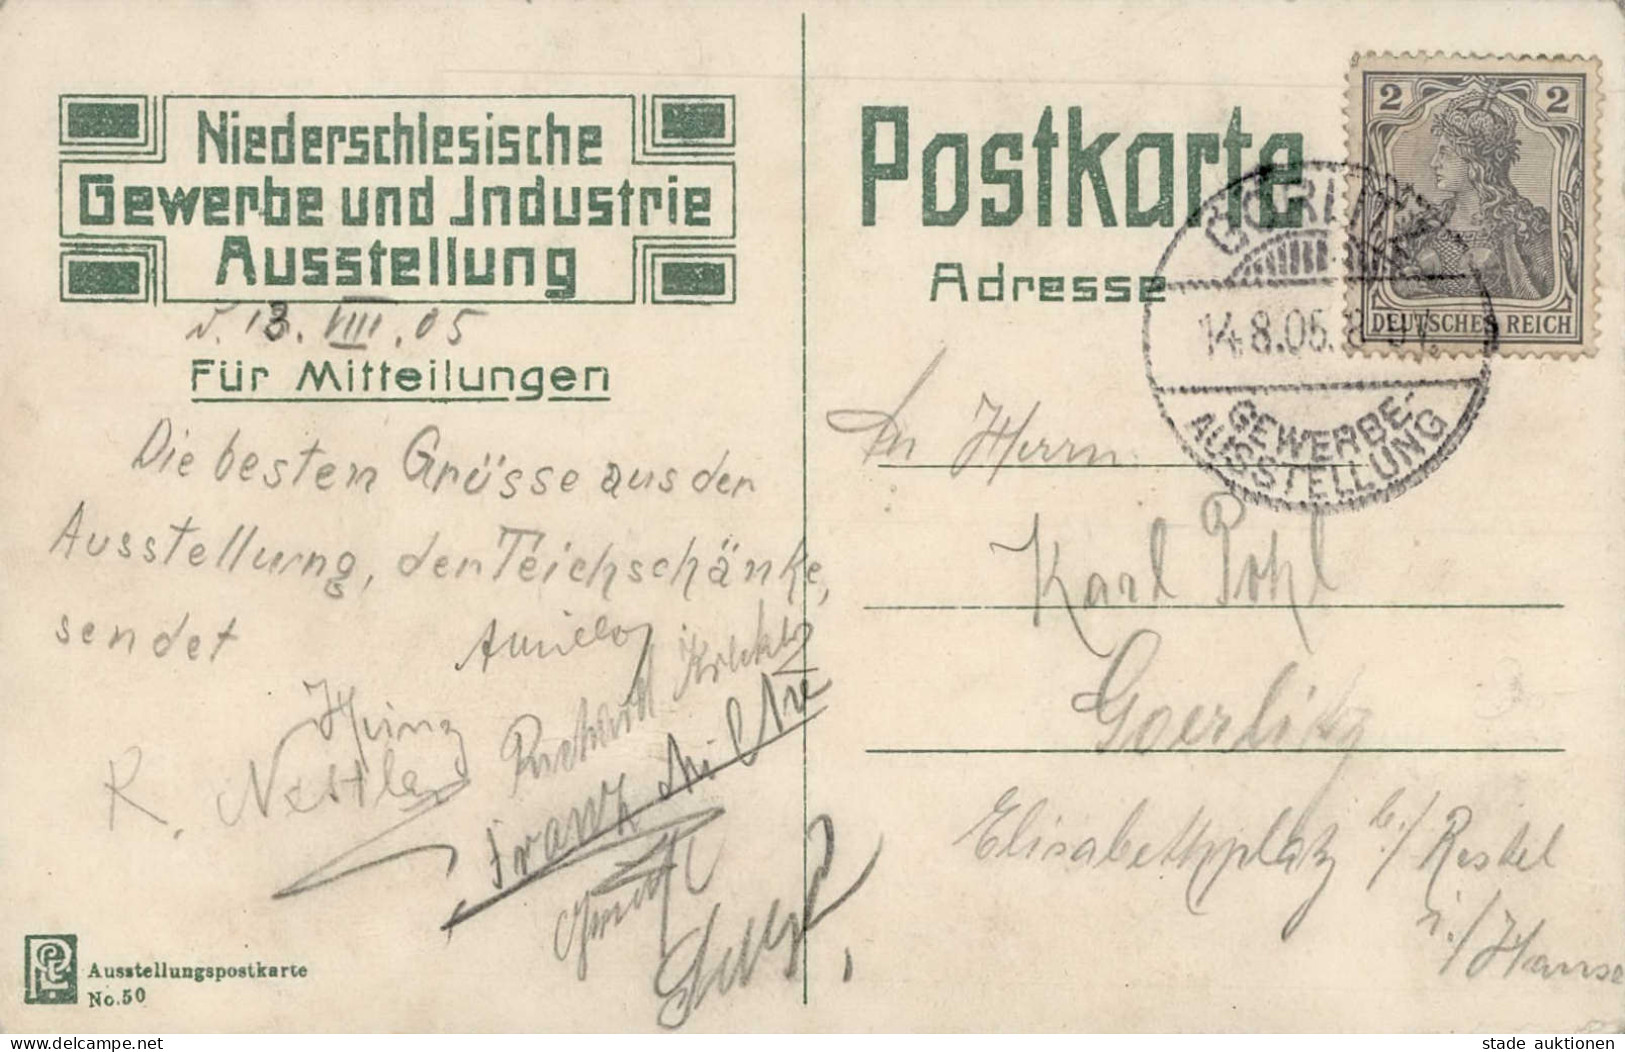 Niederschlesische
Gewerbe und Industrie
Ausstellung
d. 13. VIII. 05
Für Mitteilungen
Die besten Grüsse aus der
Ausstellung, der Teichschänke,
sendet
Heinz
R. Nestler
Richard
Franz
Ausstellungspostkarte
No. 50
Postkarte
Adresse
2 2
DEUTSCHES REICH
GÖRLITZ
14.8.05.
GEWERBE-
AUSSTELLUNG
An Herrn
Karl Pohl
Goerlitz
Elisabethplatz b./ Restel
i./ Hause
www.delcampe.net
stade auktionen